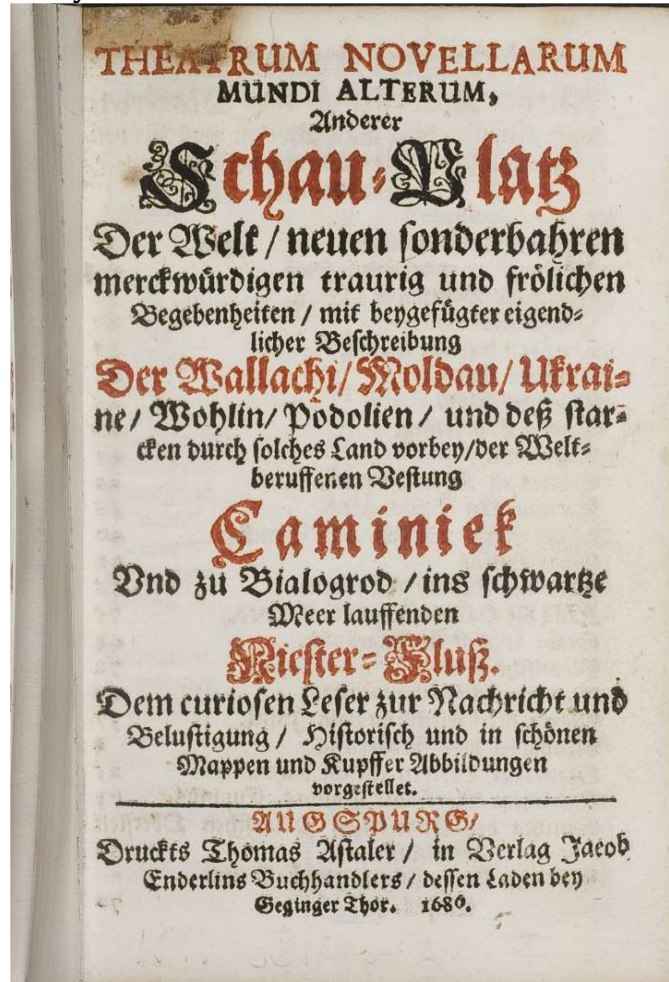 THEATRUM NOVELLARUM
MUNDI ALTERUM,
Anderer
Schau-Platz
Der Welt / neuen sonderbahren
merckwürdigen traurig und frölichen
Begebenheiten / mit beygefügter eigend-
licher Beschreibung
Der Wallachi / Moldau / Ukrai-
ne / Wohlin / Podolien / und deß star-
cken durch solches Land vorbey / der Welt-
beruffenen Vestung
Caminiek
Vnd zu Bialogrod / ins schwartze
Meer lauffenden
Niester-Fluß.
Dem curiosen Leser zur Nachricht und
Belustigung / Historisch und in schönen
Mappen und Kupffer Abbildungen
vorgestellet.
AUGSPURG /
Druckts Thomas Astaler / in Verlag Jacob
Enderlins Buchhandlers / dessen Laden bey
Geginger Thor. 1686.